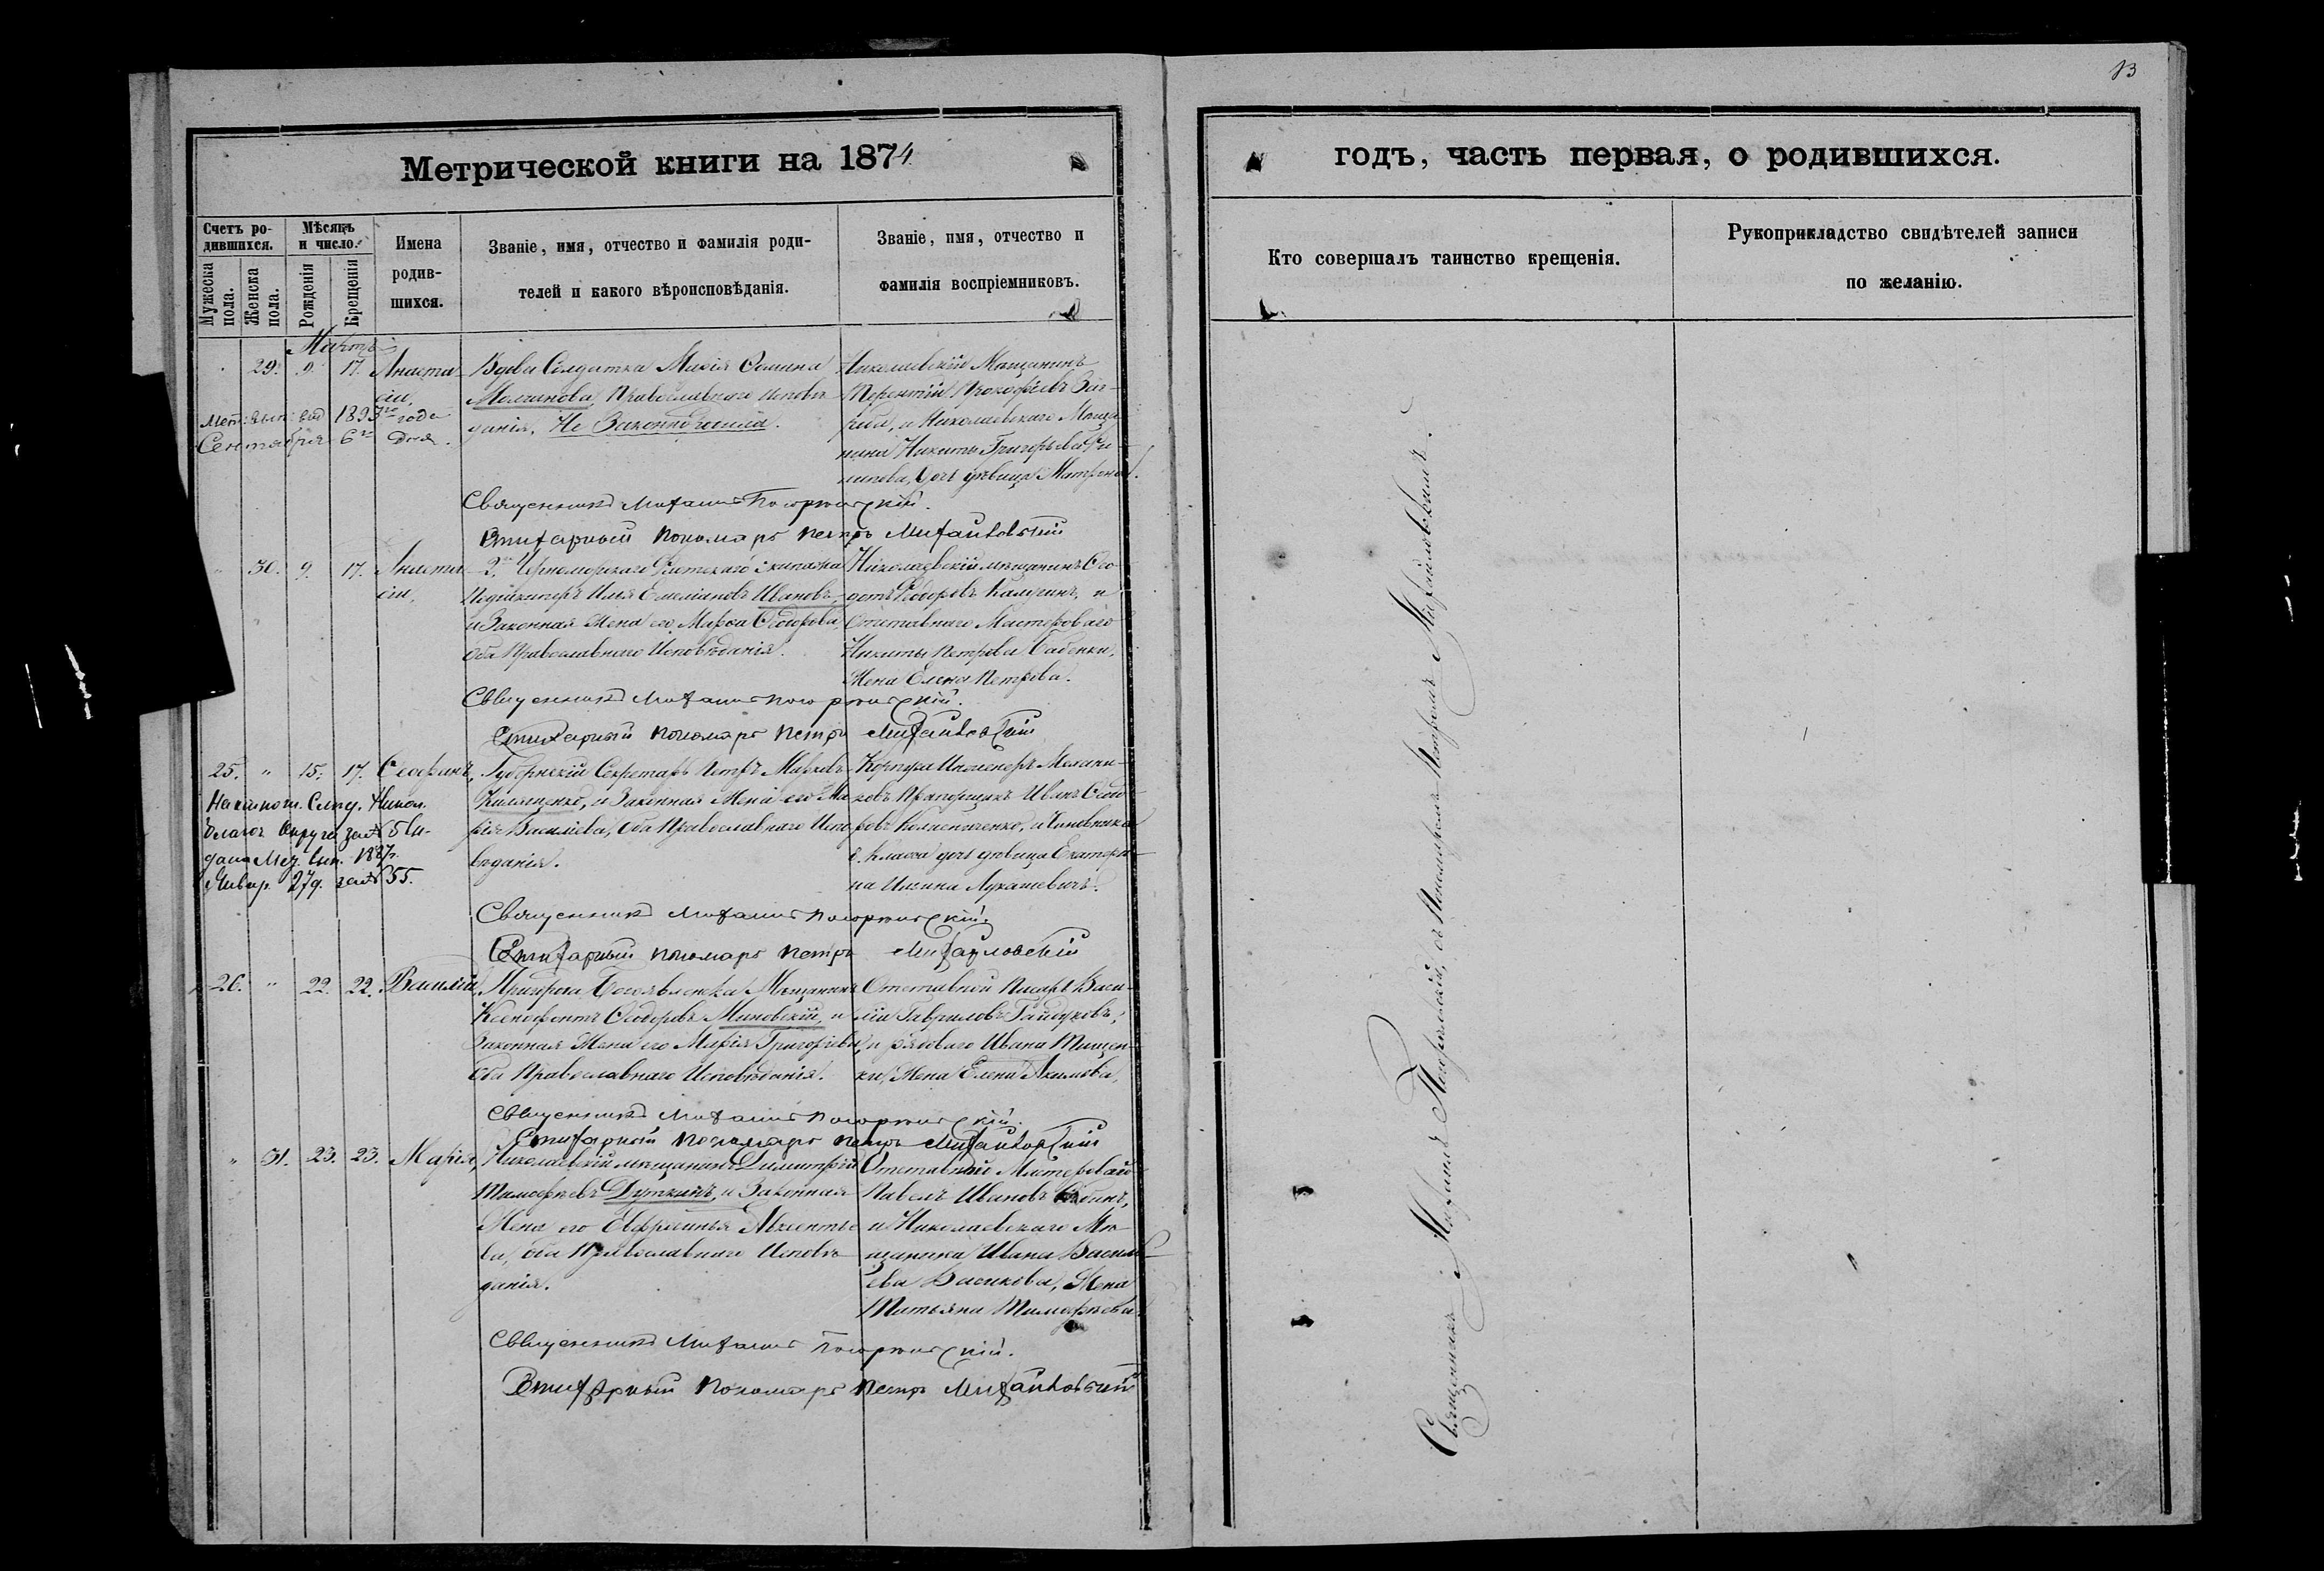 13
Метрической книги на 1874
годъ, часть первая, о родившихся.
Счетъ ро-
дившихся.
Мужеска пола.
Женска пола.
Мѣсяцъ
и число.
Рожденія
Крещенія
Имена
родив-
шихся.
Званіе, имя, отчество и фамилія роди-
телей и какого вѣроисповѣданія.
Званіе, имя, отчество и
фамилія воспріемниковъ.
Кто совершалъ таинство крещенія.
Рукоприкладство свидѣтелей записи
по желанію.
Мартъ
29. 9. 17. Анаста-
сія,
Мет: вып: выд 1893го года
Сентября 6го дня.
Вдова Солдатка Марія Сомина
Молчанова, Православнаго исповѣ-
данія. Не Законнорожд.
Николаевскій Мѣщанинъ
Терентій Прокофьевъ Заг-
, и Николаевскаго Мѣща-
нина Никиты Григорьева
, дочь дѣвица Матрона.
Священникъ Михаилъ Погорѣльскій.
Стихарный Пономарь Петръ Михайловскій
" 30. 9. 17. Анаста-
сія,
2го Черноморскаго Флотскаго экипажа
Подшкиперъ Илья Емельяновъ Ивановъ,
и Законная Жена его Марѳа Ѳедорова,
оба Православнаго Исповѣданія.
Николаевскій мѣщанинъ Ѳео-
дотъ Ѳедоровъ Калугинъ, и
Отставнаго Мастероваго
Никиты Петрова Бабенки,
Жена Елена Петрова.
Священникъ Михаилъ Погорѣльскій.
Стихарный Пономарь Петръ Михайловскій
25. " 15. 17. Ѳеофанъ,
На отнош. Смотр. Никол.
Благоч. Округа за № 5 Вы-
дана Мет. Вып. 1887г.
Январ. 27 д. за № 55.
Губернскій Секретарь Петръ Марковъ
Киященко, и Законная Жена его Ма-
рія Васильева, оба Православнаго Испо-
вѣданія.
Корпуса Инженеръ Механи-
ковъ Прапорщикъ Иванъ Ѳеодо-
ровъ Колисниченко, и Чиновника
8. Класса дочь дѣвица Екатери-
на Ильина Лукашевичъ.
Священникъ Михаилъ Погорѣльскій.
Стихарный Пономарь Петръ Михайловскій
26. " 22. 22. Василій,
Пригорода Богоявленска Мѣщанинъ
Ксенофонтъ Ѳеодоровъ Миновскій, и
Законная Жена его Марія Григорьева,
оба Православнаго Исповѣданія.
Отставной Писарь Васи-
лій Гавриловъ Гайдуковъ,
и рядоваго Ивана Тищен-
ки, Жена Елена Акимова,
Священникъ Михаилъ Погорѣльскій.
Стихарный Пономарь Петръ Михайловскій
" 31. 23. 23. Марія,
Николаевскій мѣщанинъ Димитрій
Тимофѣевъ Дуткинъ, и Законная
Жена его Евфросинья Авксентье-
ва, оба Православнаго Исповѣ-
данія.
Отставный Мастеровой
Павелъ Ивановъ Бабинъ,
и Николаевскаго Мѣ-
щанина Ивана Василь-
ева Васикова, Жена
Татьяна Тимофѣева.
Священникъ Михаилъ Погорѣльскій.
Стихарный Пономарь Петръ Михайловскій
Священникъ Михаилъ Погорѣльскій, съ Пономаремъ Петромъ Михайловскимъ.